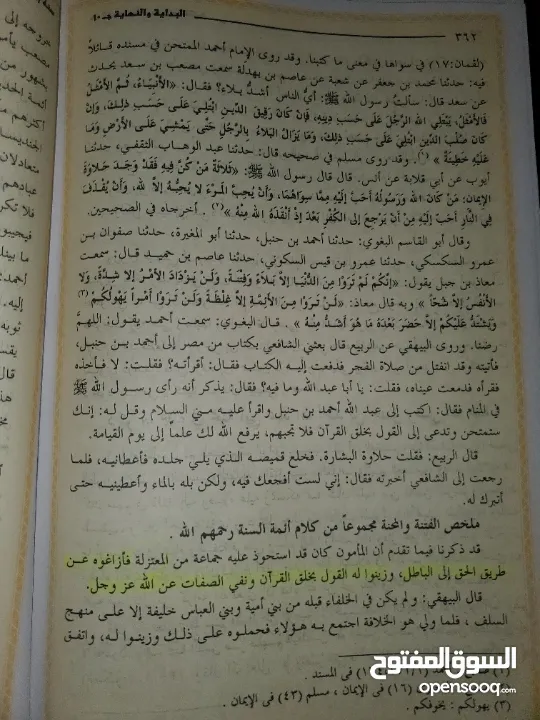 ٣٦٢
البداية والنهاية جـ ١٠
(لقمان: ١٧) في سواها في معنى ما كتبنا. وقد روى الإمام أحمد الممتحن في مسنده قائلاً
فيه: حدثنا محمد بن جعفر عن شعبة عن عاصم بن بهدلة سمعت مصعب بن سعد يحدث
عن سعد قال: سألت رسول الله ﷺ: أيُّ الناس أشدُّ بلاء؟ فقال: «الأَنْبِيَاءُ، ثُمَّ الأَمْثَلُ
فَالأَمْثَلُ، يَبْتَلِي اللهُ الرَّجُلَ عَلَى حَسَبِ دِينِهِ، فَإِنْ كَانَ رَقِيقَ الدِّينِ ابْتُلِيَ عَلَى حَسَبِ ذلِكَ، وَإِنْ
كَانَ صَلْبَ الدِّينِ ابْتُلِيَ عَلَى حَسَبِ ذلِكَ، وَمَا يَزَالُ البَلاءُ بِالرَّجُلِ حَتَّى يَمْشِيَ عَلَى الأَرْضِ وَمَا
عَلَيْهِ خَطِيئَةٌ» (١). وقد روى مسلم في صحيحه قال: حدثنا عبد الوهاب الثقفي، حدثنا
أيوب عن أبي قلابة عن أنس. قال قال رسول الله ﷺ: «ثَلاثَةٌ مَنْ كُنَّ فِيهِ فَقَدْ وَجَدَ حَلاوَةَ
الإِيمَانِ: مَنْ كَانَ اللهُ وَرَسُولُهُ أَحَبَّ إِلَيْهِ مِمَّا سِوَاهُمَا، وَأَنْ يُحِبَّ المَرْءَ لا يُحِبُّهُ إِلاَّ للهِ، وَأَنْ يُقْذَفَ
فِي النَّارِ أَحَبَّ إِلَيْهِ مِنْ أَنْ يَرْجِعَ إِلَى الكُفْرِ بَعْدَ إِذْ أَنْقَذَهُ اللهُ مِنْهُ» (٢). أخرجاه في الصحيحين.
وقال أبو القاسم البغوي: حدثنا أحمد بن حنبل، حدثنا أبو المغيرة، حدثنا صفوان بن
عمرو السكسكي، حدثنا عمرو بن قيس السكوني، حدثنا عاصم بن حميد قال: سمعت
معاذ بن جبل يقول: «إِنَّكُمْ لَمْ تَرَوْا مِنَ الدُّنْيَا إِلاَّ بَلاءً وَفِتْنَةً، وَلَنْ يَزْدَادَ الأَمْرُ إِلا شِدَّةً، وَلا
الأَنْفُسُ إِلا شُحًّا» وبه قال معاذ: «لَنْ تَرَوْا مِنَ الأَئِمَّةِ إِلاَّ غِلْظَةً وَلَنْ تَرَوْا أَمْراً يَهُولُكُمْ (٣)
وَيَشْتَدُّ عَلَيْكُمْ إِلاَّ حَضَرَ بَعْدَهُ مَا هُوَ أَشَدُّ مِنْهُ». قال البغوي: سمعت أحمد يقول: اللهمَّ
رضنا. وروى البيهقي عن الربيع قال بعثني الشافعي بكتاب من مصر إلى أحمد بن حنبل،
فأتيته وقد انفتل من صلاة الفجر فدفعت إليه الكتاب فقال: أقرأته؟ فقلت: لا فأخذه
فقرأه فدمعت عيناه، فقلت: يا أبا عبد الله وما فيه؟ فقال: يذكر أنه رأى رسول الله ﷺ
في المنام فقال: اكتب إلى عبد الله أحمد بن حنبل واقرأ عليه مني السلام وقل له: إنك
ستمتحن وتدعى إلى القول بخلق القرآن فلا تجبهم، يرفع الله لك علماً إلى يوم القيامة.
قال الربيع: فقلت حلاوة البشارة. فخلع قميصه الذي يلي جلده فأعطانيه، فلما
رجعت إلى الشافعي أخبرته فقال: إني لست أفجعك فيه، ولكن بله بالماء وأعطينيه حتى
أتبرك له.
ملخص الفتنة والمحنة مجموعاً من كلام أئمة السنة رحمهم الله.
قد ذكرنا فيما تقدم أن المأمون كان قد استحوذ عليه جماعة من المعتزلة فأزاغوه عن
طريق الحق إلى الباطل، وزينوا له القول بخلق القرآن ونفي الصفات عن الله عز وجل.
قال البيهقي: ولم يكن في الخلفاء قبله من بني أمية وبني العباس خليفة إلا على منهج
السلف، فلما ولي هو الخلافة اجتمع به هؤلاء فحملوه على ذلك وزينوا له، واتفق
في المسند
(١٦) في الإيمان، مسلم (٤٣) في الإيمان.
(٣) يهولكم: يخوفكم.
السوق المفتوح
opensooq.com